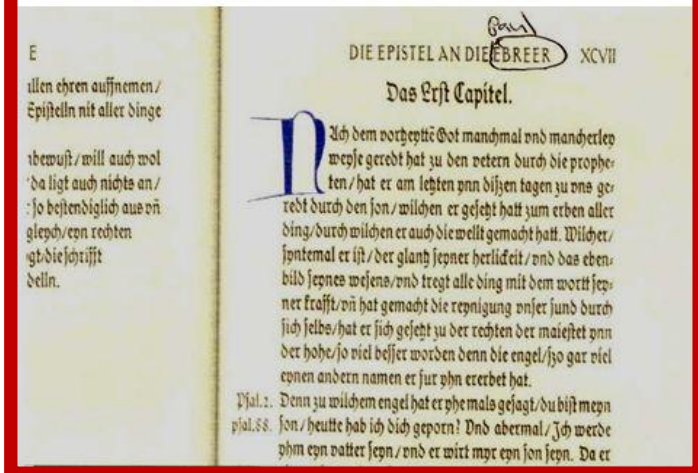 E
allen ehren auffnemen/
Epistelln nit aller dinge
bewust/will auch wol
da ligt auch nichts an/
so bestendiglich aus vñ
gleych/eyn rechten
gt/die schrifft
delln.
Paul
DIE EPISTEL AN DIE EBREER XCVII
Das Erst Capitel.
NAch dem vorheyttẽ Got manchmal vnd mancherley
weyse geredt hat zu den vetern durch die prophe-
ten/hat er am letzten ynn diszen tagen zu vns ge-
redt durch den son/wilchen er gesetzt hatt zum erben aller
ding/durch wilchen er auch die wellt gemacht hatt. Wilcher/
syntemal er ist/der glantz seyner herlickeit/vnd das eben-
bild seynes wesens/vnd tregt alle ding mit dem wortt sey-
ner krafft/vñ hat gemacht die reynigung vnser sund durch
sich selbs/hat er sich gesetzt zu der rechten der maiestet ynn
der hohe/so viel besser worden denn die engel/szo gar viel
eynen andern namen er fur yhn ererbet hat.
Psal.2. Denn zu wilchem engel hat er yhe mals gesagt/du bist meyn
psal.88. son/heutte hab ich dich geporn? Vnd abermal/Ich werde
yhm eyn vatter seyn/vnd er wirt myr eyn son seyn. Da er